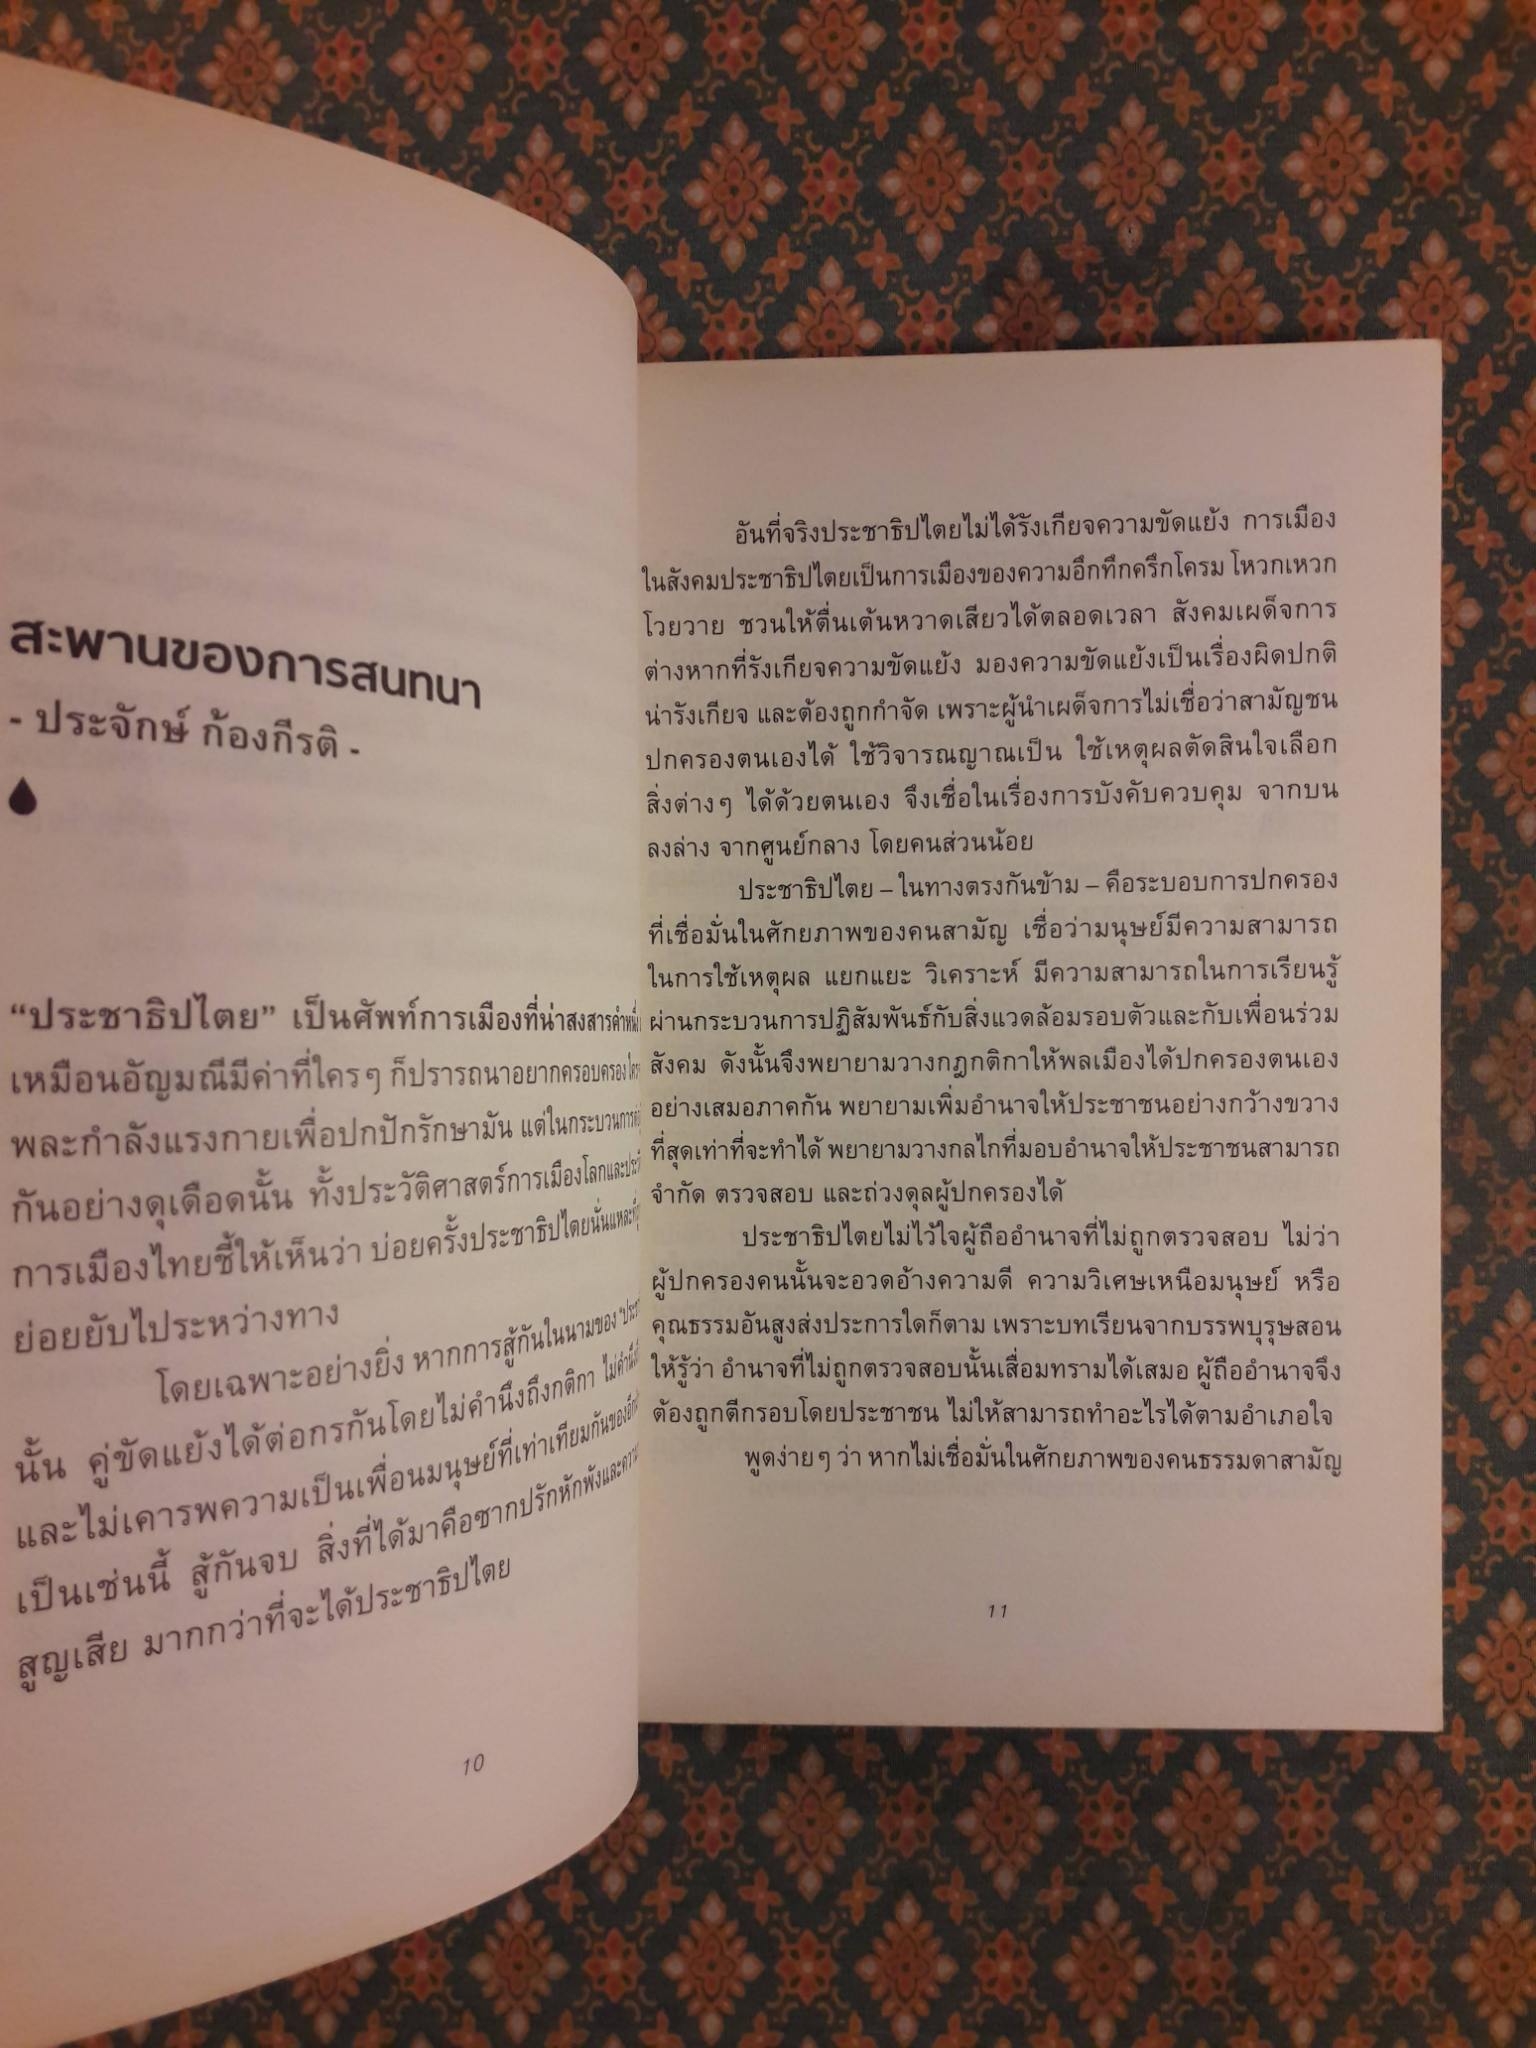 สะพานของการสนทนา
- ประจักษ์ ก้องกีรติ -
“ประชาธิปไตย” เป็นศัพท์การเมืองที่น่าสงสารคำหนึ่ง
เหมือนอัญมณีมีค่าที่ใครๆ ก็ปรารถนาอยากครอบครอง
พละกำลังแรงกายเพื่อปกปักรักษามัน แต่ในกระบวนการ
กันอย่างดุเดือดนั้น ทั้งประวัติศาสตร์การเมืองโลกและ
การเมืองไทยชี้ให้เห็นว่า บ่อยครั้งประชาธิปไตยนั่นแหละ
ย่อยยับไประหว่างทาง
โดยเฉพาะอย่างยิ่ง หากการสู้กันในนามของ
นั้น คู่ขัดแย้งได้ต่อกรกันโดยไม่คำนึงถึงกติกา
และไม่เคารพความเป็นเพื่อนมนุษย์ที่เท่าเทียมกันของ
เป็นเช่นนี้ สู้กันจบ สิ่งที่ได้มาคือซากปรักหักพังและ
สูญเสีย มากกว่าที่จะได้ประชาธิปไตย
10
อันที่จริงประชาธิปไตยไม่ได้รังเกียจความขัดแย้ง การเมือง
ในสังคมประชาธิปไตยเป็นการเมืองของความอึกทึกครึกโครม โหวกเหวก
โวยวาย ชวนให้ตื่นเต้นหวาดเสียวได้ตลอดเวลา สังคมเผด็จการ
ต่างหากที่รังเกียจความขัดแย้ง มองความขัดแย้งเป็นเรื่องผิดปกติ
น่ารังเกียจ และต้องถูกกำจัด เพราะผู้นำเผด็จการไม่เชื่อว่าสามัญชน
ปกครองตนเองได้ ใช้วิจารณญาณเป็น ใช้เหตุผลตัดสินใจเลือก
สิ่งต่างๆ ได้ด้วยตนเอง จึงเชื่อในเรื่องการบังคับควบคุม จากบน
ลงล่าง จากศูนย์กลาง โดยคนส่วนน้อย
ประชาธิปไตย – ในทางตรงกันข้าม – คือระบอบการปกครอง
ที่เชื่อมั่นในศักยภาพของคนสามัญ เชื่อว่ามนุษย์มีความสามารถ
ในการใช้เหตุผล แยกแยะ วิเคราะห์ มีความสามารถในการเรียนรู้
ผ่านกระบวนการปฏิสัมพันธ์กับสิ่งแวดล้อมรอบตัวและกับเพื่อนร่วม
สังคม ดังนั้นจึงพยายามวางกฎกติกาให้พลเมืองได้ปกครองตนเอง
อย่างเสมอภาคกัน พยายามเพิ่มอำนาจให้ประชาชนอย่างกว้างขวาง
ที่สุดเท่าที่จะทำได้ พยายามวางกลไกที่มอบอำนาจให้ประชาชนสามารถ
จำกัด ตรวจสอบ และถ่วงดุลผู้ปกครองได้
ประชาธิปไตยไม่ไว้ใจผู้ถืออำนาจที่ไม่ถูกตรวจสอบ ไม่ว่า
ผู้ปกครองคนนั้นจะอวดอ้างความดี ความวิเศษเหนือมนุษย์ หรือ
คุณธรรมอันสูงส่งประการใดก็ตาม เพราะบทเรียนจากบรรพบุรุษสอน
ให้รู้ว่า อำนาจที่ไม่ถูกตรวจสอบนั้นเสื่อมทรามได้เสมอ ผู้ถืออำนาจจึง
ต้องถูกตีกรอบโดยประชาชน ไม่ให้สามารถทำอะไรได้ตามอำเภอใจ
พูดง่ายๆ ว่า หากไม่เชื่อมั่นในศักยภาพของคนธรรมดาสามัญ
11